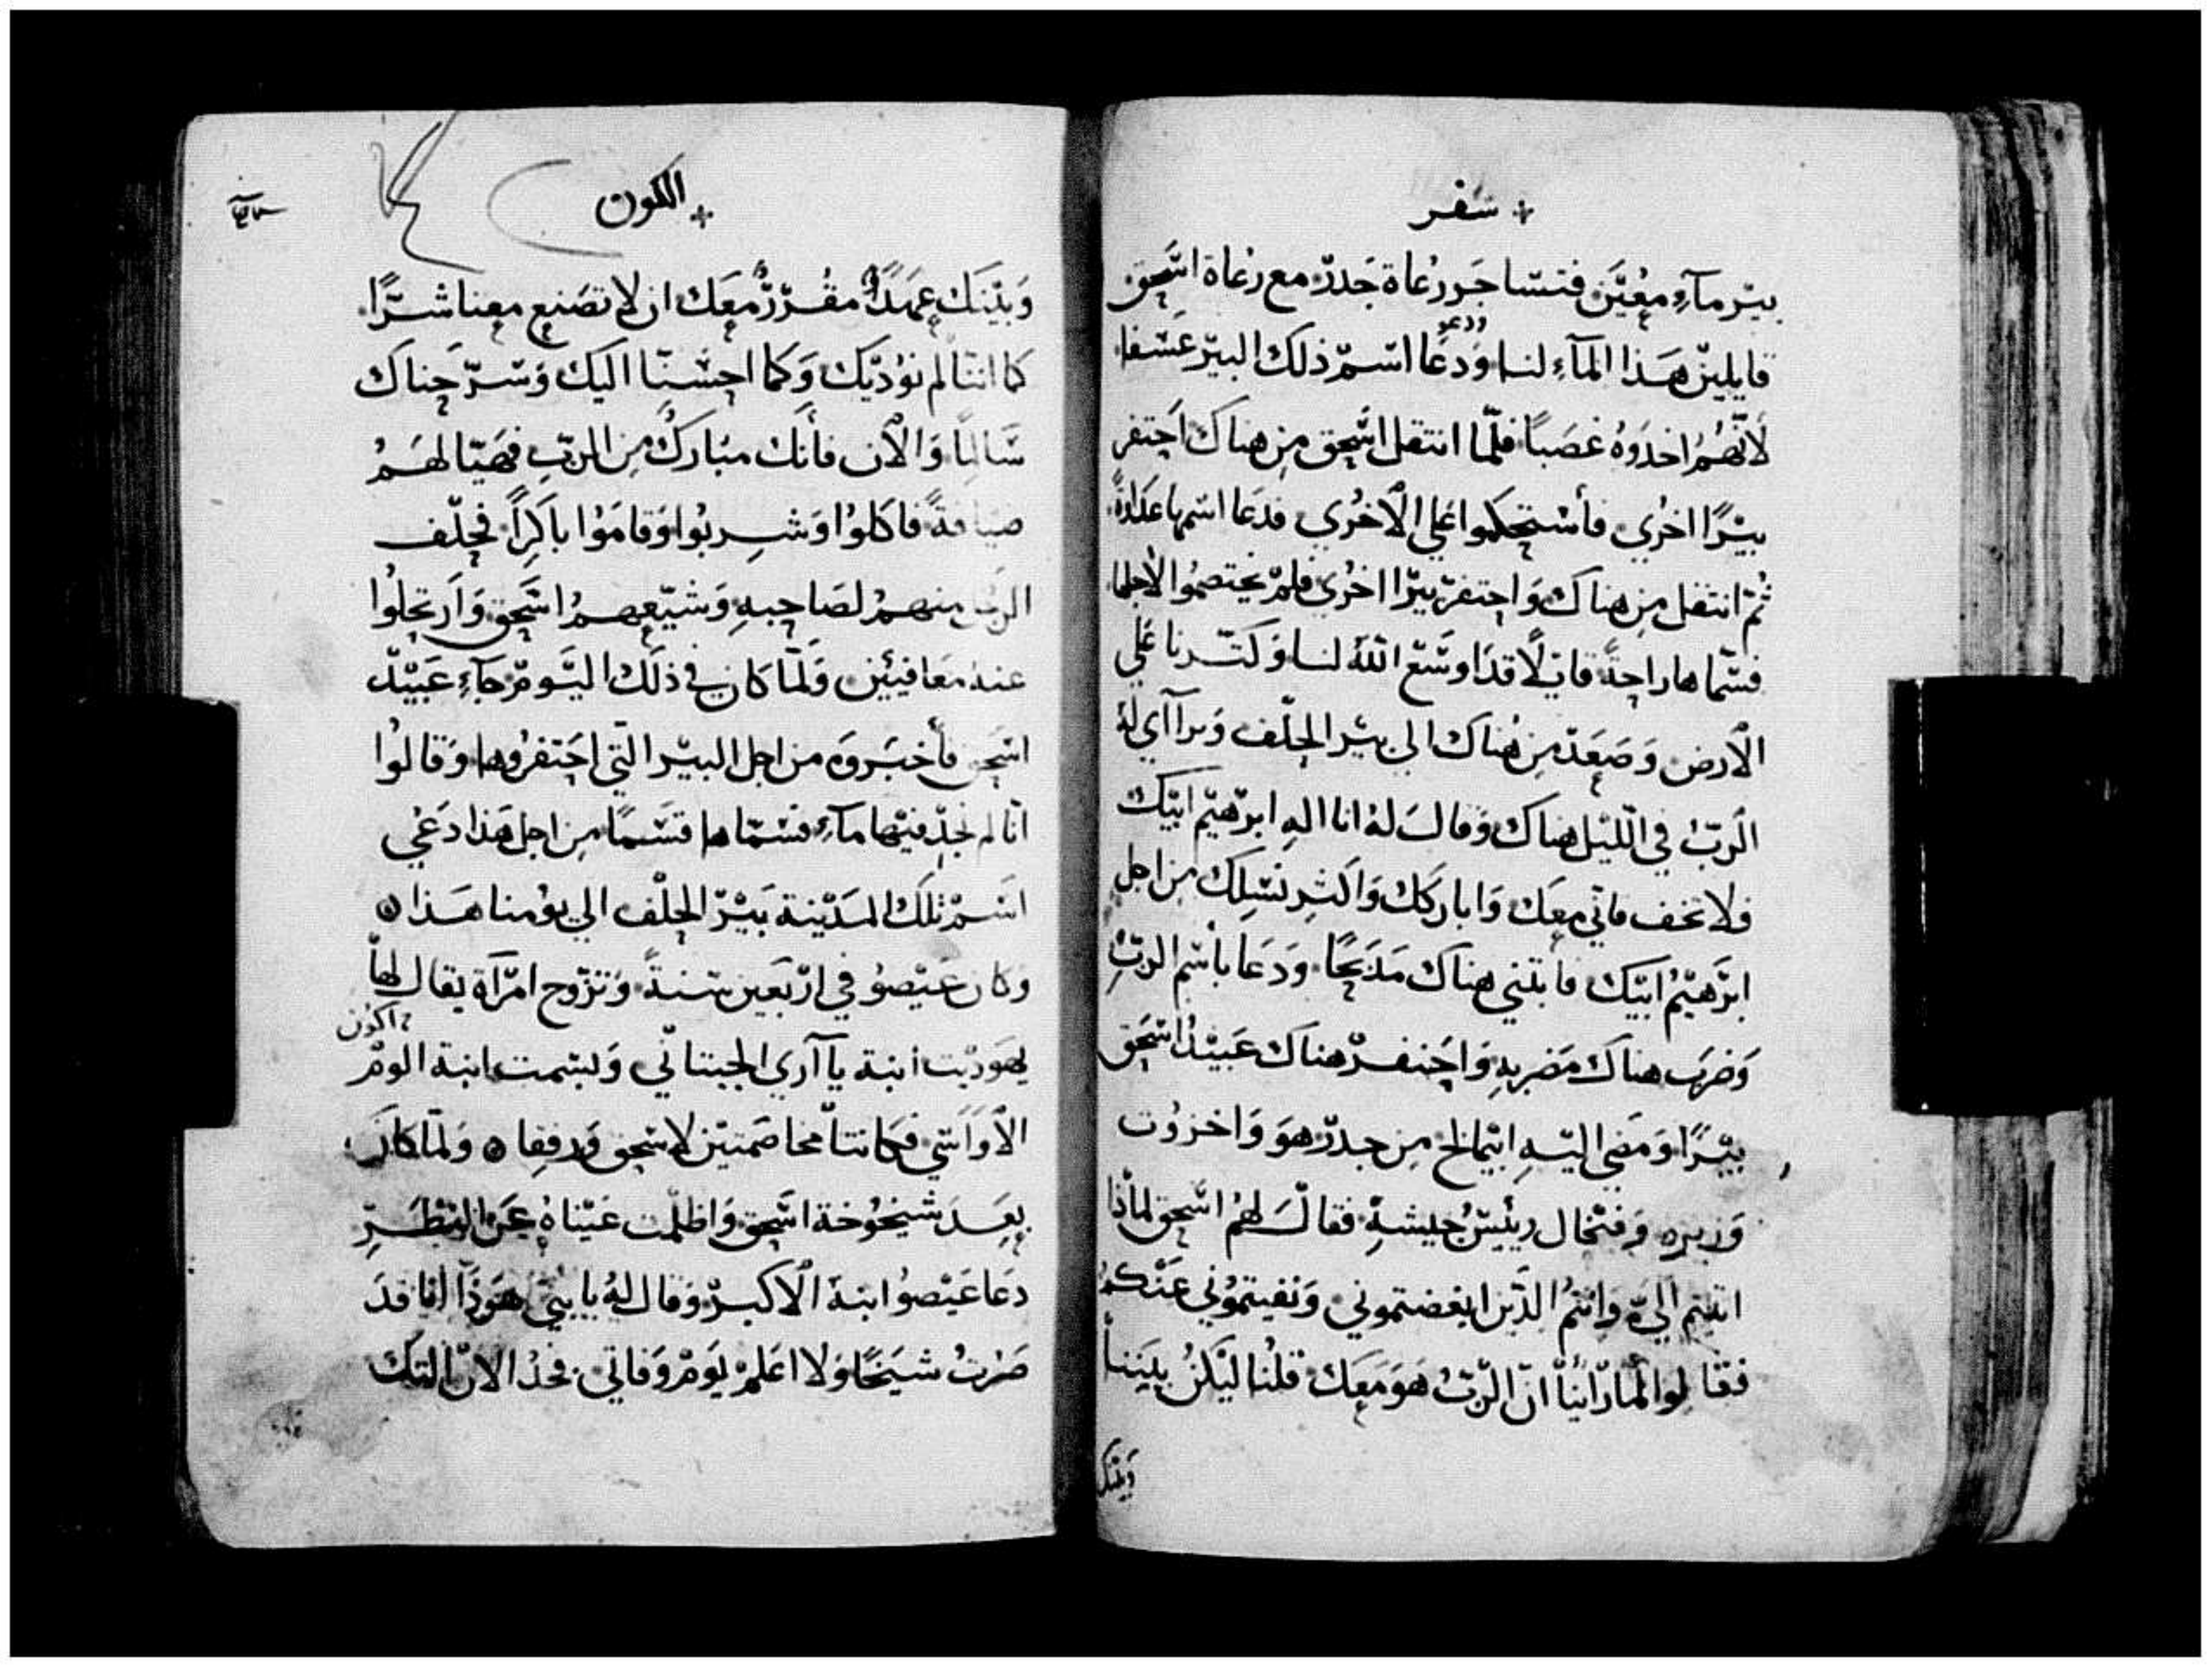 سفر
بيرمآءٍ معُيَّن فتشاجَر رُعاة جَدرّ مع رعُاة اسَّحق
قايلينّ هَذا المآءِ لنا وَدعُا اسّمّ ذلك البيّر عَسَفا
ودعو
لانّهُمُ اخدَوهُ غصَبًا فلمّا انتقل اسَّحق مِن هناك احَتفر
بيّرًا اخرُي فأستحكموا علي الاخرُي فدعَا اسمها عَدَاوةً
ثُمّ انتقل مِن هناك وَاحتفرّ بيرّا اخرُي فلمّ يختصمُوا لاجلها
فسّماها راحِةً قايلًا قدَ اوسَّع اللهُ لنا وَكتّرنا علي
الارض وَصَعَدّ مِن هُناك الي بيّر الحِلّف وَترآآي لهُ
الَربّ في اللّيْل هناك وَقالَ لهُ انا الهِ ابرّهيْم ابيّك
فلا تخف فانّي معَك وَاباركَك وَاكثِر نسَّلِك مِن اجل
ابرَّهيّمُ ابيّك فأبتني هناك مَذبَحًا وَدعَا بأسّم الربِّ
وَضرَب هناك مَضربهِ وَاحَتفرّ هناك عَبيّدُ اسَّحَق
بيّرًا وَمَضى اليّهِ ابيّمالخ مِن جدرّ هوَ وَاخزوُت
وَزيره وَفتْخال ريئيسّ جُيشهِّ فقالَ لهُمُ اسَّحق لماّذا
اتيتم اليَّ وَانتمُ الذّين ابغضتموني وَنفيتموُني عَنْكمُ
فقالوا لماّ رأينا انّ الربّ هَوَ مَعَك قلُنا ليَكنُ بيَننا
وَبيّنك
الكون
وَبيّنَك عَهَدًا مقُرّرًّ معَك ان لا تصَنع معنا شَرًّا
كما انّنا لم نوُذيّك وَكما احسَنّا اليك وَسرّحناك
سَالمًا وَالاَن فأنَك مُبَاركُ مِن الربّ فهَيّا لهَمُ
ضيافةً فاكلوُا وَشِربُوا وَقامَوُا باكرًا فحِلّف
الرجُل منهمُ لصَاحِبهِ وَشيّعهمُ اسَّحَق وَارَتحلوُا
عندهُ مَعافيئين وَلمّا كان في ذلَك اليَومّ جآءِ عَبيّد
اسَّحق فأخبَروَه من اجل البيّر التّي احَتفروُها وَقالوُا
انّا لم نجدّ فيّها مآءِ فسّماها قسَمًا مِن اجل هَذا دَعُي
اسَمّ تلَك المَدّيْنة بيّرّ الحِلّف الي يوُمنا هَذا
وَكان عَيّصوُ في ارْبَعين سَنةً وَتزّوج امّرَآة يقال لهاّ
يهَوديّت ابنة يآآري الحِيتانّي وَبسّمت ابنة الومّ
اكون
الاوَانتي فكانتاّ مخاصَمتيّن لاسَحق وَرفقا وَلمّا كانَ
بعَدَ شيخُوُخة اسَّحق وَاظلّمّت عَيّناهُ عَن النَّظَرِّ
دعَا عَيْصوُ ابنهَ الاكبرّ وَقال لهُ يا بُنيَّ هَوَذَا انا قدَ
صَرْتُ شيَخًا وَلا اعَلمّ يوَمّ وَفاتي فخُذ الانّ التك